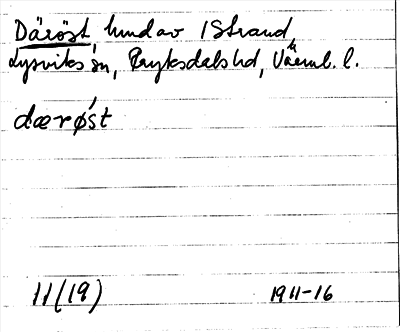 Däröst, hmd av 1 Strand,
Lysviks sn, Fryksdals hd, Värml. l.
dærøśt
11(19)
1911-16